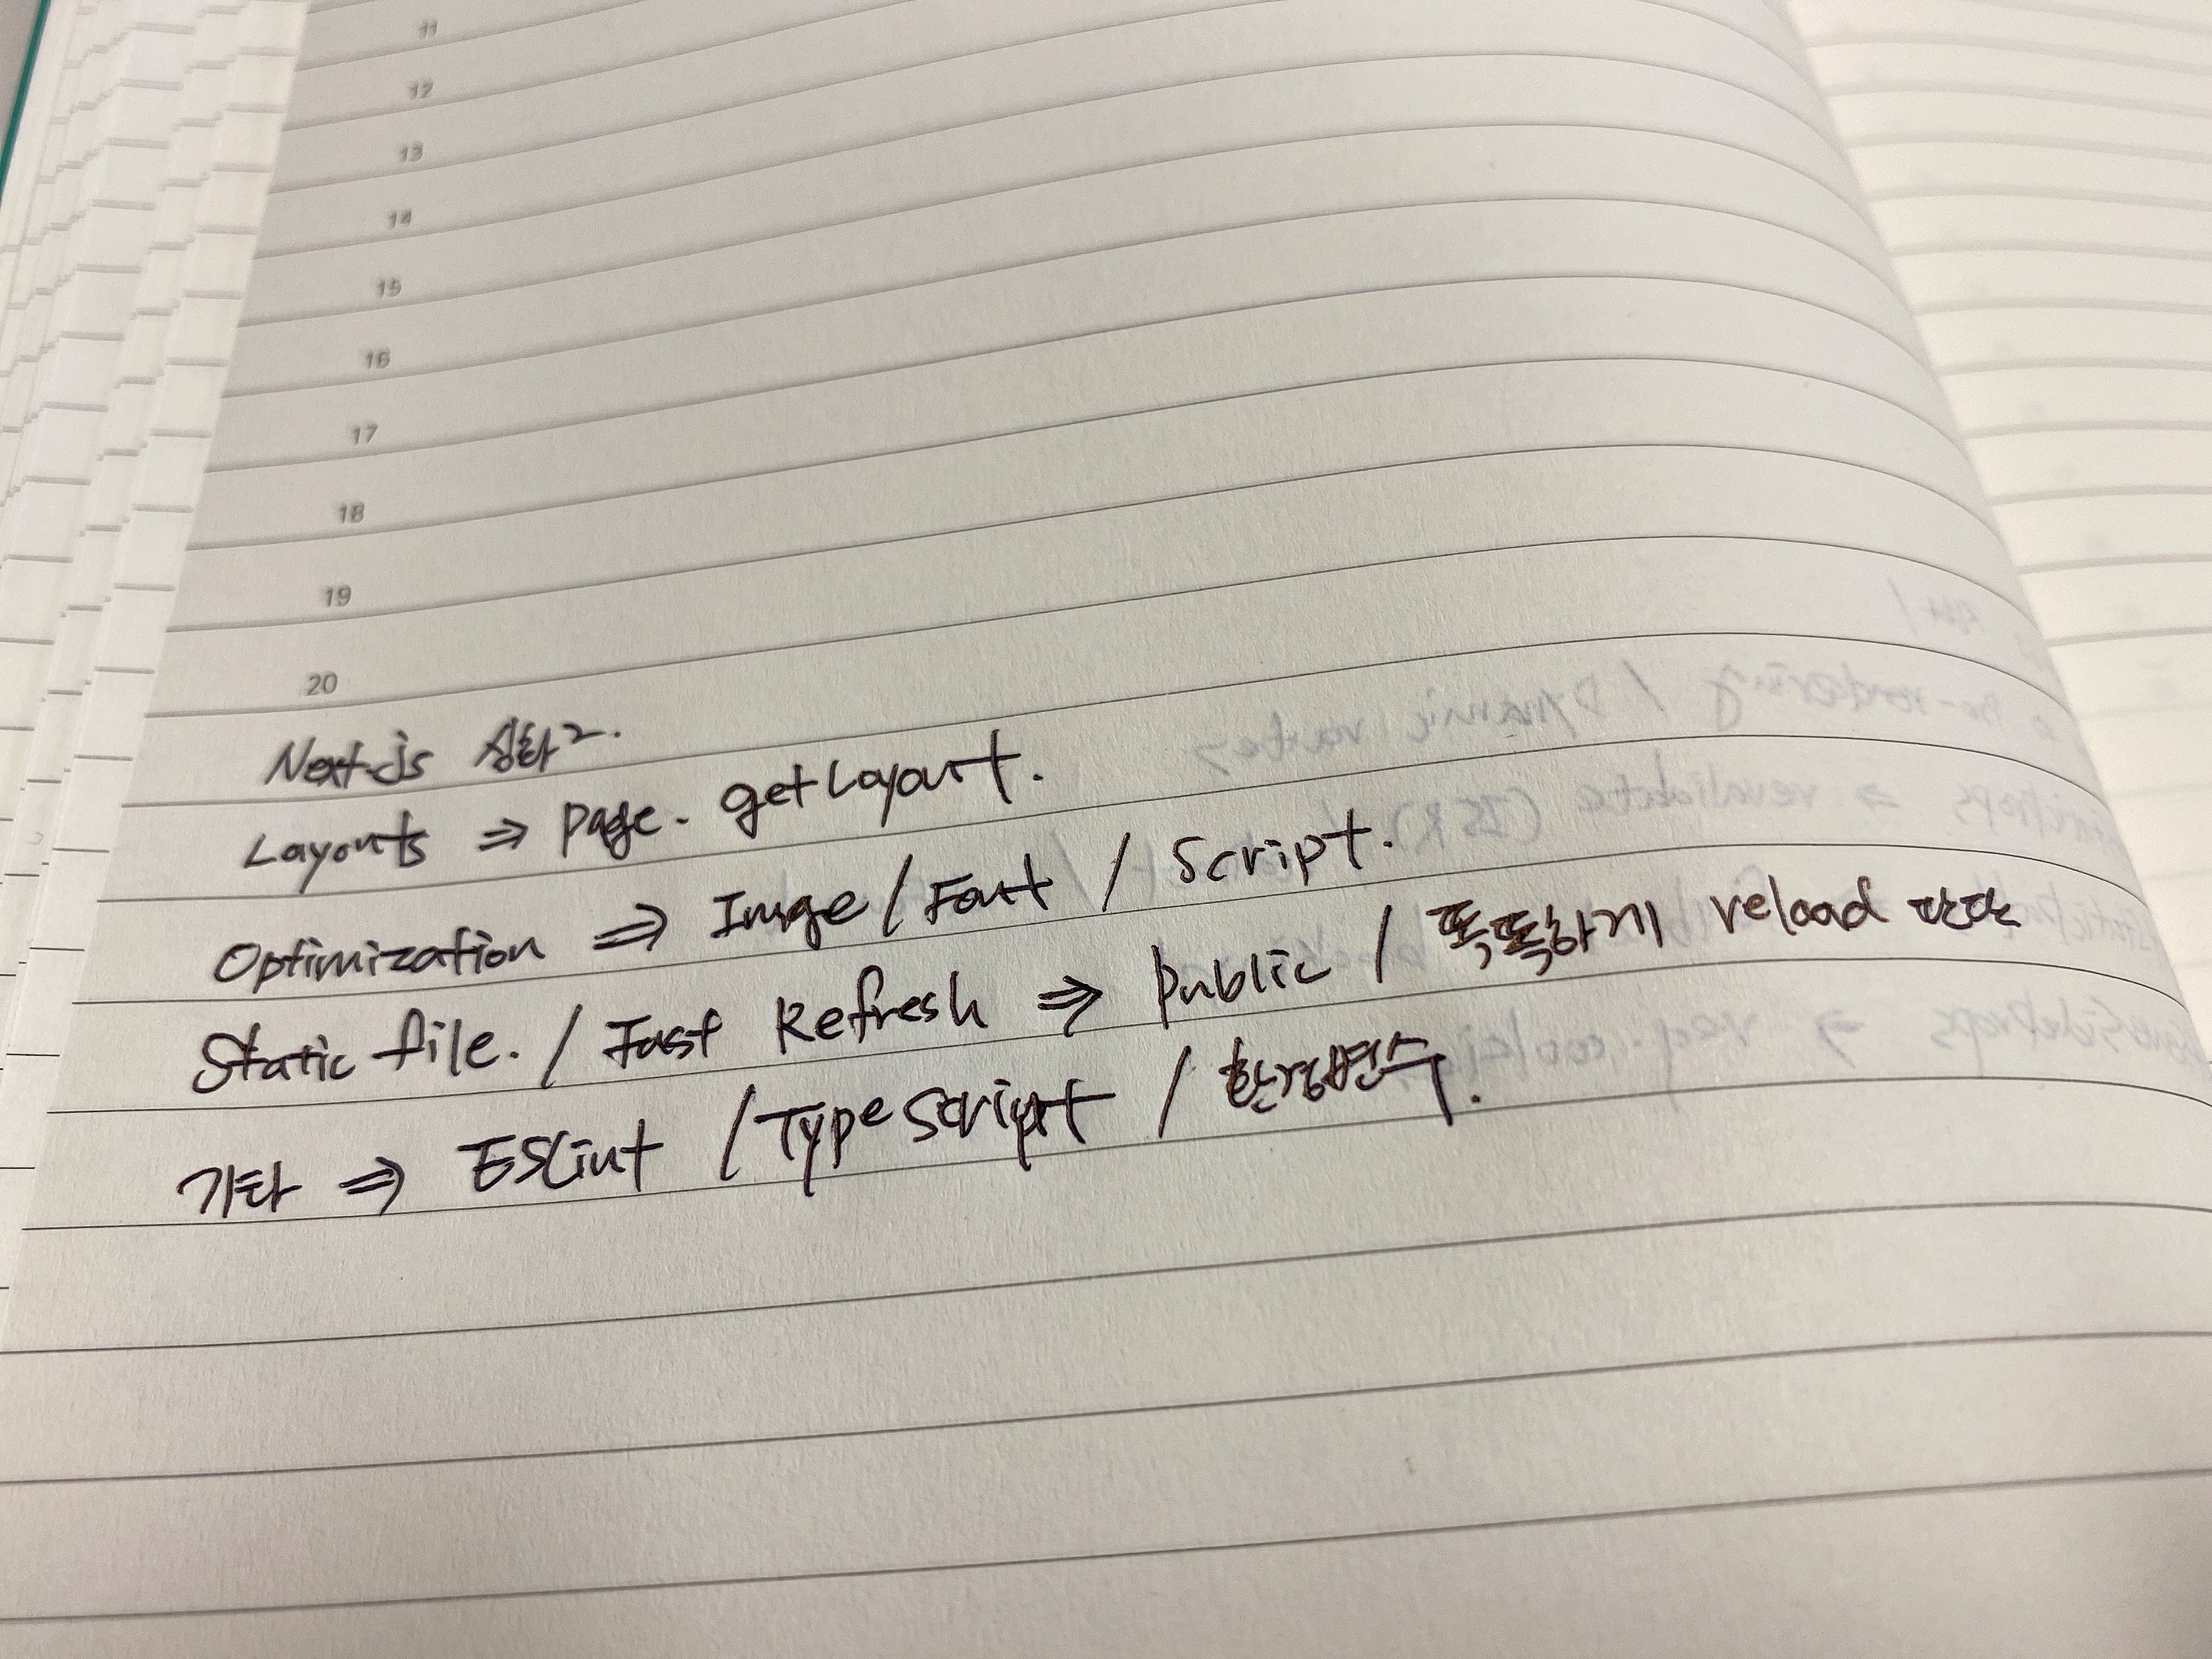 11
12
13
14
15
16
17
18
19
20
Next.js 심화2.
Layouts ⇒ Page. getLayout.
Optimization ⇒ Image / Font / Script.
Static file. / Fast Refresh ⇒ public / 똑똑하게 reload 판단
기타 ⇒ ESLint / TypeScript / 환경변수.